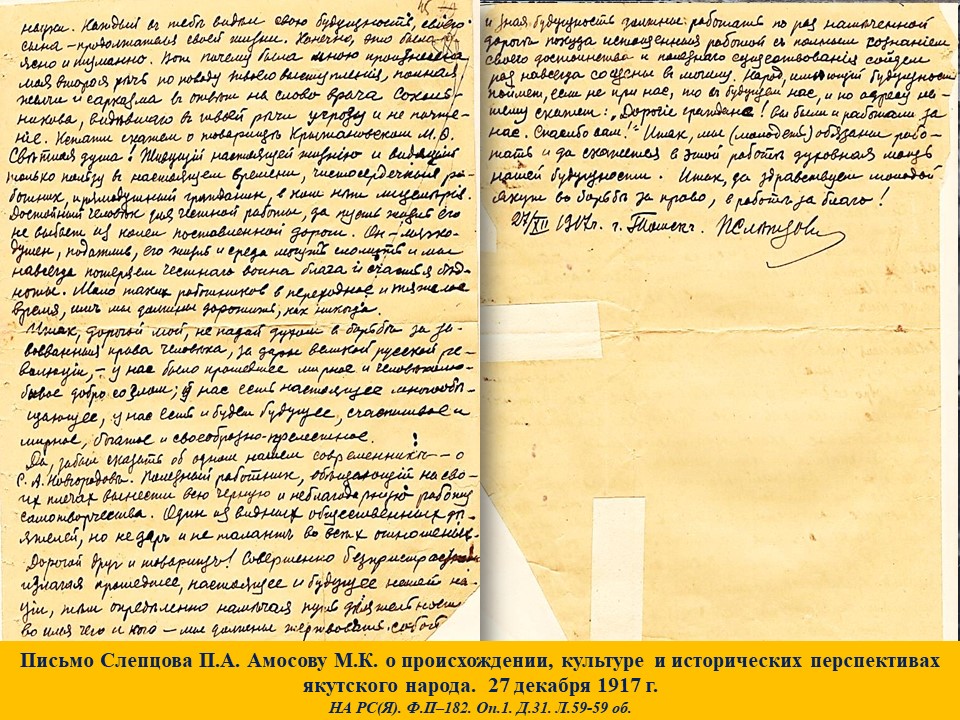 науки. Каждый въ тебѣ видѣл свою будущность, своего
сына – продолжателя своей жизни. Конечно, это было
ясно и туманно. Вот почему была мною произнесена
моя вторая рѣчь по поводу твоего выступленія, полная
желчи и сарказма в отвѣт на слово врача Сокол-
никова, видѣвшаго въ твоей рѣчи угрозу и не почте-
ніе. Кстати скажем о товарищѣ Крыжановском М. Ѳ.
Свѣтлая душа! Живущій настоящей жизнію и видящій
только пользу в настоящем времени, чистосердечный ра-
ботник, прямодушный гражданин, в нем нѣт
Достойный человѣк для честной работы, да пусть жизнь его
не выбьет из колеи поставленной дороги. Он –
душен, податлив, его жизнь и среда могут сломить и мы
навсегда потеряем честнаго воина блага и счастья бѣд-
ноты. Мало таких работников в переходное и тяжелое
время, ими мы должны дорожить, как никогда.
Итак, дорогой мой, не падай духом в борьбѣ за за-
воеванныя права человѣка, за дары великой русской ре-
волюціи, – у нас было прошедшее мирное и человѣколю-
бивое добро со злом; у нас есть настоящее многообѣ-
щающее, у нас есть и будет будущее, счастливое и
мирное, богатое и своеобразно-прелестное.
Да, забыл сказать об одном нашем современникѣ – о
С. А. Новгородовѣ. Полезный работник, обѣщающій на сво-
их плечах вынести всю черную и неблагодарную работу
самотворчества. Один из видных общественных дѣ-
ятелей, но не даръ и не талантъ во всѣх отношеніях.
Дорогой друг и товарищъ! Совершенно безпристрастно
излагая прошедшее, настоящее и будущее нашей на-
ціи, тѣм опредѣленно намѣчая путь дѣятельности
во имя чего и кого – мы должны жертвовать собой
и зная будущность должны работать по раз намѣченной
дорогѣ покуда истощенныя работой съ полным сознаніем
своего достоинства и полезнаго существованія сойдем
раз навсегда со сцены в могилу. Народ, имѣющій будущность
поймет, если не при нас, то въ будущем нас, и по адресу на-
шему скажет: „Дорогіе граждане! Вы были и работали за
нас. Спасибо вам!" Итак, мы (молодежь) обязаны рабо-
тать и да скажется в этой работѣ духовная мощь
нашей будущности. Итак, да здравствует молодой
якут в борьбѣ за право, в работѣ за благо!
27/XII 1917 г. г. Томск. П Слѣпцов
Письмо Слепцова П.А. Амосову М.К. о происхождении, культуре и исторических перспективах
якутского народа. 27 декабря 1917 г.
НА РС(Я). Ф.П–182. Оп.1. Д.31. Л.59-59 об.